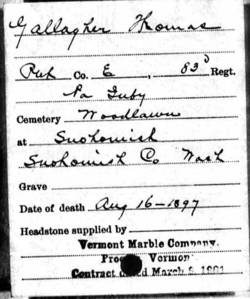 Gallagher Thomas
Pvt Co. E, 83d Regt.
Pa Infy
Cemetery Woodlawn
at Snohomish
Snohomish Co Wash
Grave
Date of death Aug 16-1897
Headstone supplied by
Vermont Marble Company,
Vermont
Contract March 1901